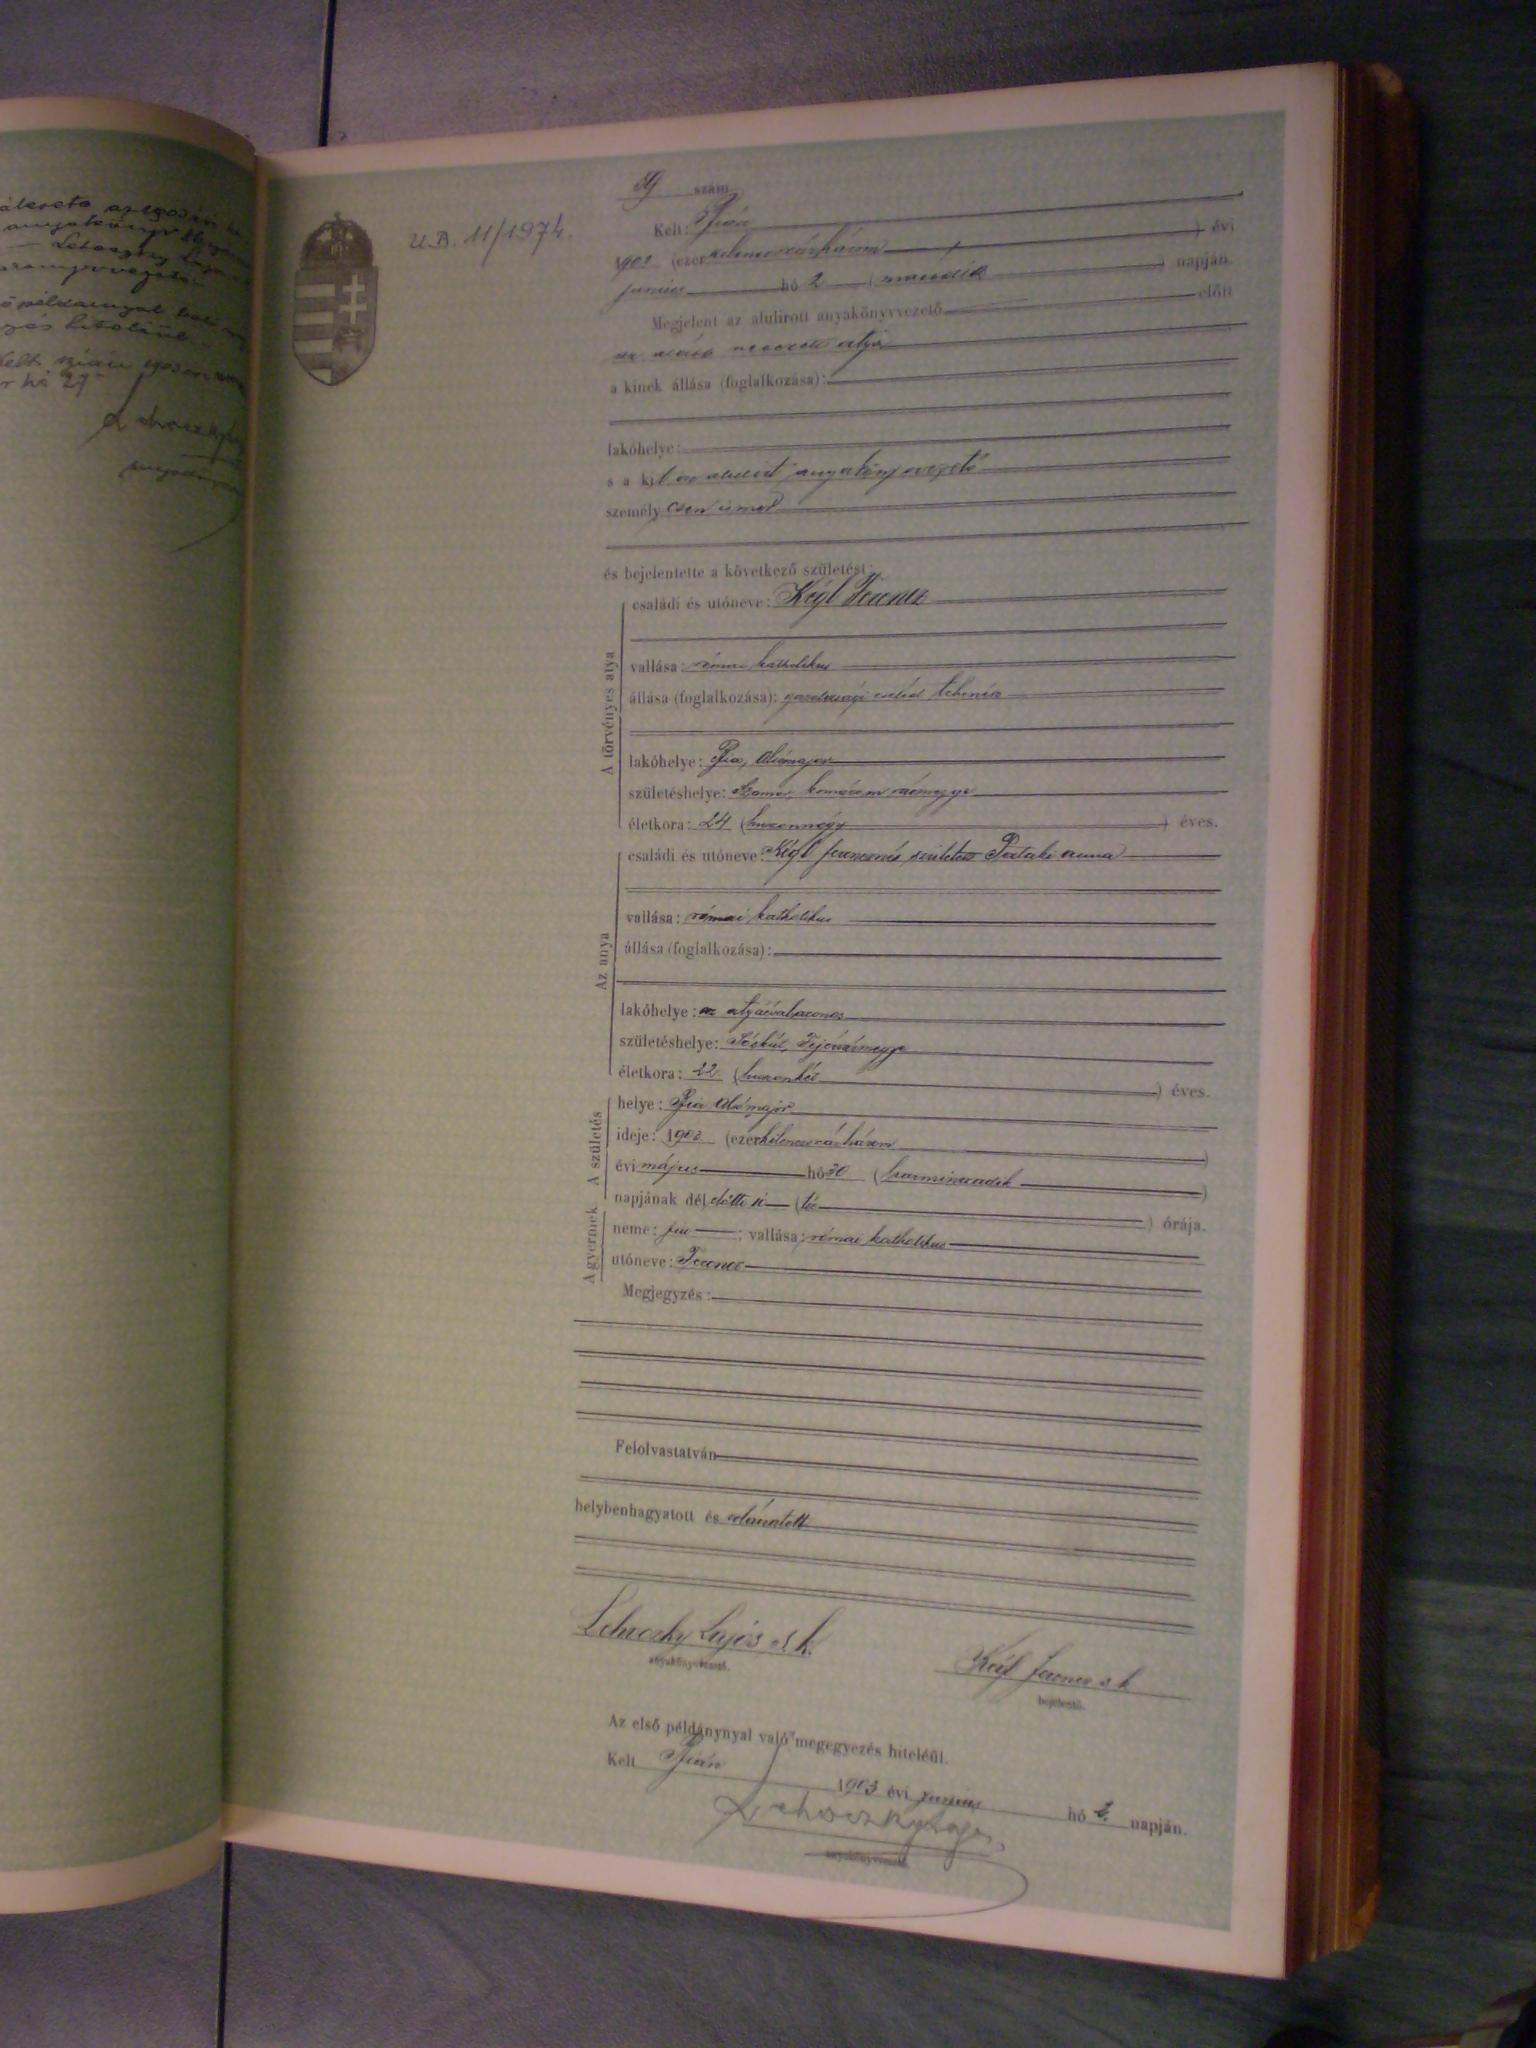 59 szám
U.B. 11/1974.
Kelt: Bián
1903 (ezerkilenczszázhárom) évi
június hó 2 (második) napján.
Megjelent az alulirott anyakönyvvezető előtt
az alább nevezett atya
a kinek állása (foglalkozása):
lakóhelye:
s a kit az alulirt anyakönyvvezető
személyesen ismer
és bejelentette a következő születést:
A törvényes atya
családi és utóneve: Kégl Ferencz
vallása: római katholikus
állása (foglalkozása): gazdasági cseléd tehenész
lakóhelye: Bia,
születéshelye: Szomor, Komárom vármegye
életkora: 24 (huszonnégy) éves.
Az anya
családi és utóneve: Kégl Ferenczné, született Pataki Anna
vallása: római katholikus
állása (foglalkozása):
lakóhelye: az atyáéval azonos
születéshelye: Sóskút, Fejérvármegye
életkora: 22 (huszonkét) éves.
A születés
helye: Bia
ideje: 1903 (ezerkilenczszázhárom)
évi május hó 30 (harminczadik)
napjának dél előtti (tíz) órája.
A gyermek
neme: fiú; vallása: római katholikus
utóneve: Ferencz
Megjegyzés:
Felolvastatván
helybenhagyatott és aláiratott
Lehoczky Lajos s. k.
anyakönyvvezető.
Kégl Ferencz s k
bejelentő.
Az első példánynyal való megegyezés hiteléül.
Kelt Bián 1903 évi június hó 2. napján.
Lehoczky Lajos
anyakönyvvezető.